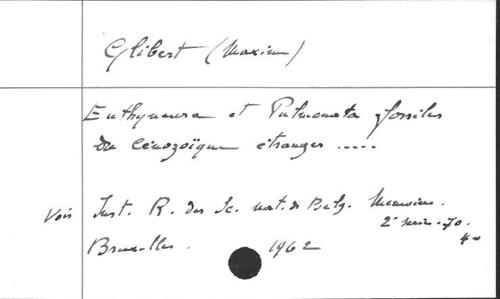 Glibert (Maxime)
Euthyneura et Pulmonata fossiles
du Cénozoïque étranger .....
Voir Inst. R. des Sc. nat. de Belg. Memoires.
2e série - 70.
Bruxelles. 1962 4°